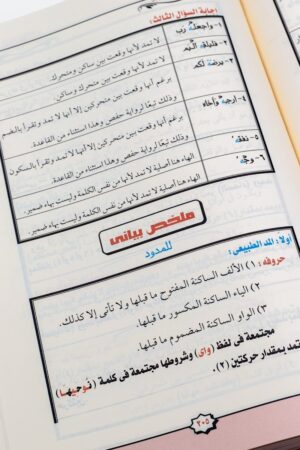 إجابة السؤال الثالث:
١- واجعله رب
لا تمد لأنها وقعت بين ساكن ومتحرك.
٢- فليلقه اليم
لا تمد لأنها وقعت بين متحرك وساكن.
٣- يرضه لكم
برغم أنها وقعت بين متحركين إلا أنها لا تمد وتقرأ بالضم
وذلك تبعًا لرواية حفص وهذا استثناء من القاعدة.
٤- أرجه وأخاه
برغم أنها وقعت بين متحركين إلا أنها لا تمد وتقرأ بالسكون
وذلك تبعًا لرواية حفص وهذا استثناء من القاعدة.
٥- نفقه
الهاء هنا أصلية لا تمد لأنها من نفس الكلمة وليست بهاء ضمير.
٦- وجه
الهاء هنا أصلية لا تمد لأنها من نفس الكلمة وليست بهاء ضمير.
ملخص بيانى
للمدود
أولا: المد الطبيعى:
حروفه: ١) الألف الساكنة المفتوح ما قبلها ولا تأتى إلا كذلك.
٢) الياء الساكنة المكسور ما قبلها.
٣) الواو الساكنة المضموم ما قبلها.
مجتمعة فى لفظ (واى) وشروطها مجتمعة فى كلمة (نوحيها)
تمد بمقدار حركتين (٢)
٢٠٥